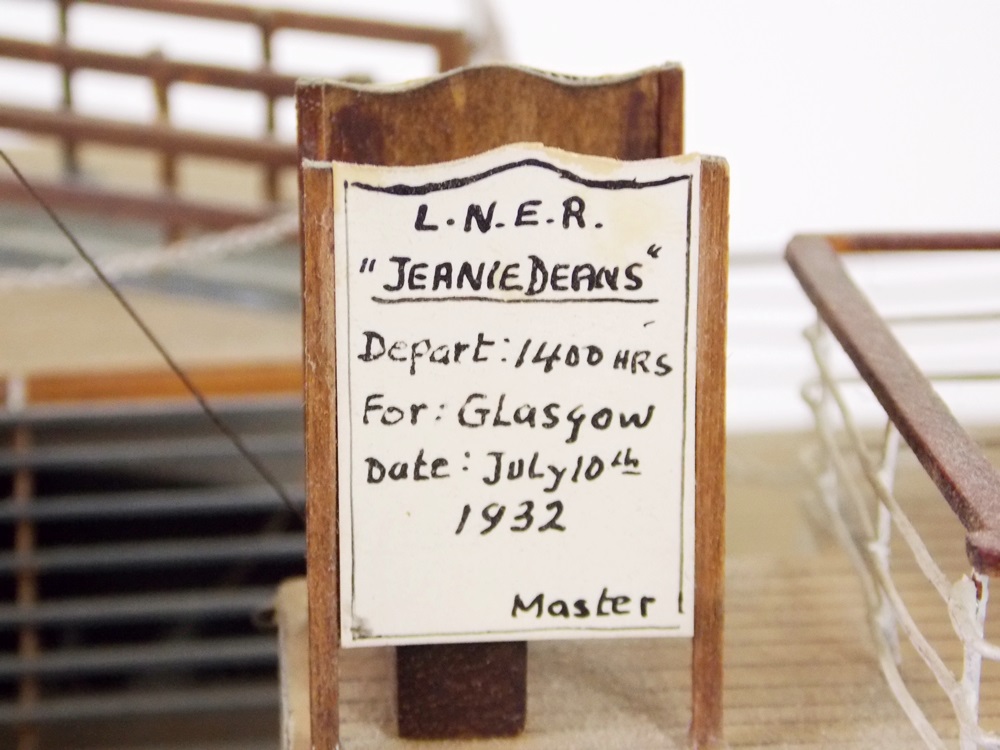 L.N.E.R.
"JEANIE DEANS"
Depart: 1400 HRS
For: GLasgow
Date: JuLy 10th
1932
Master